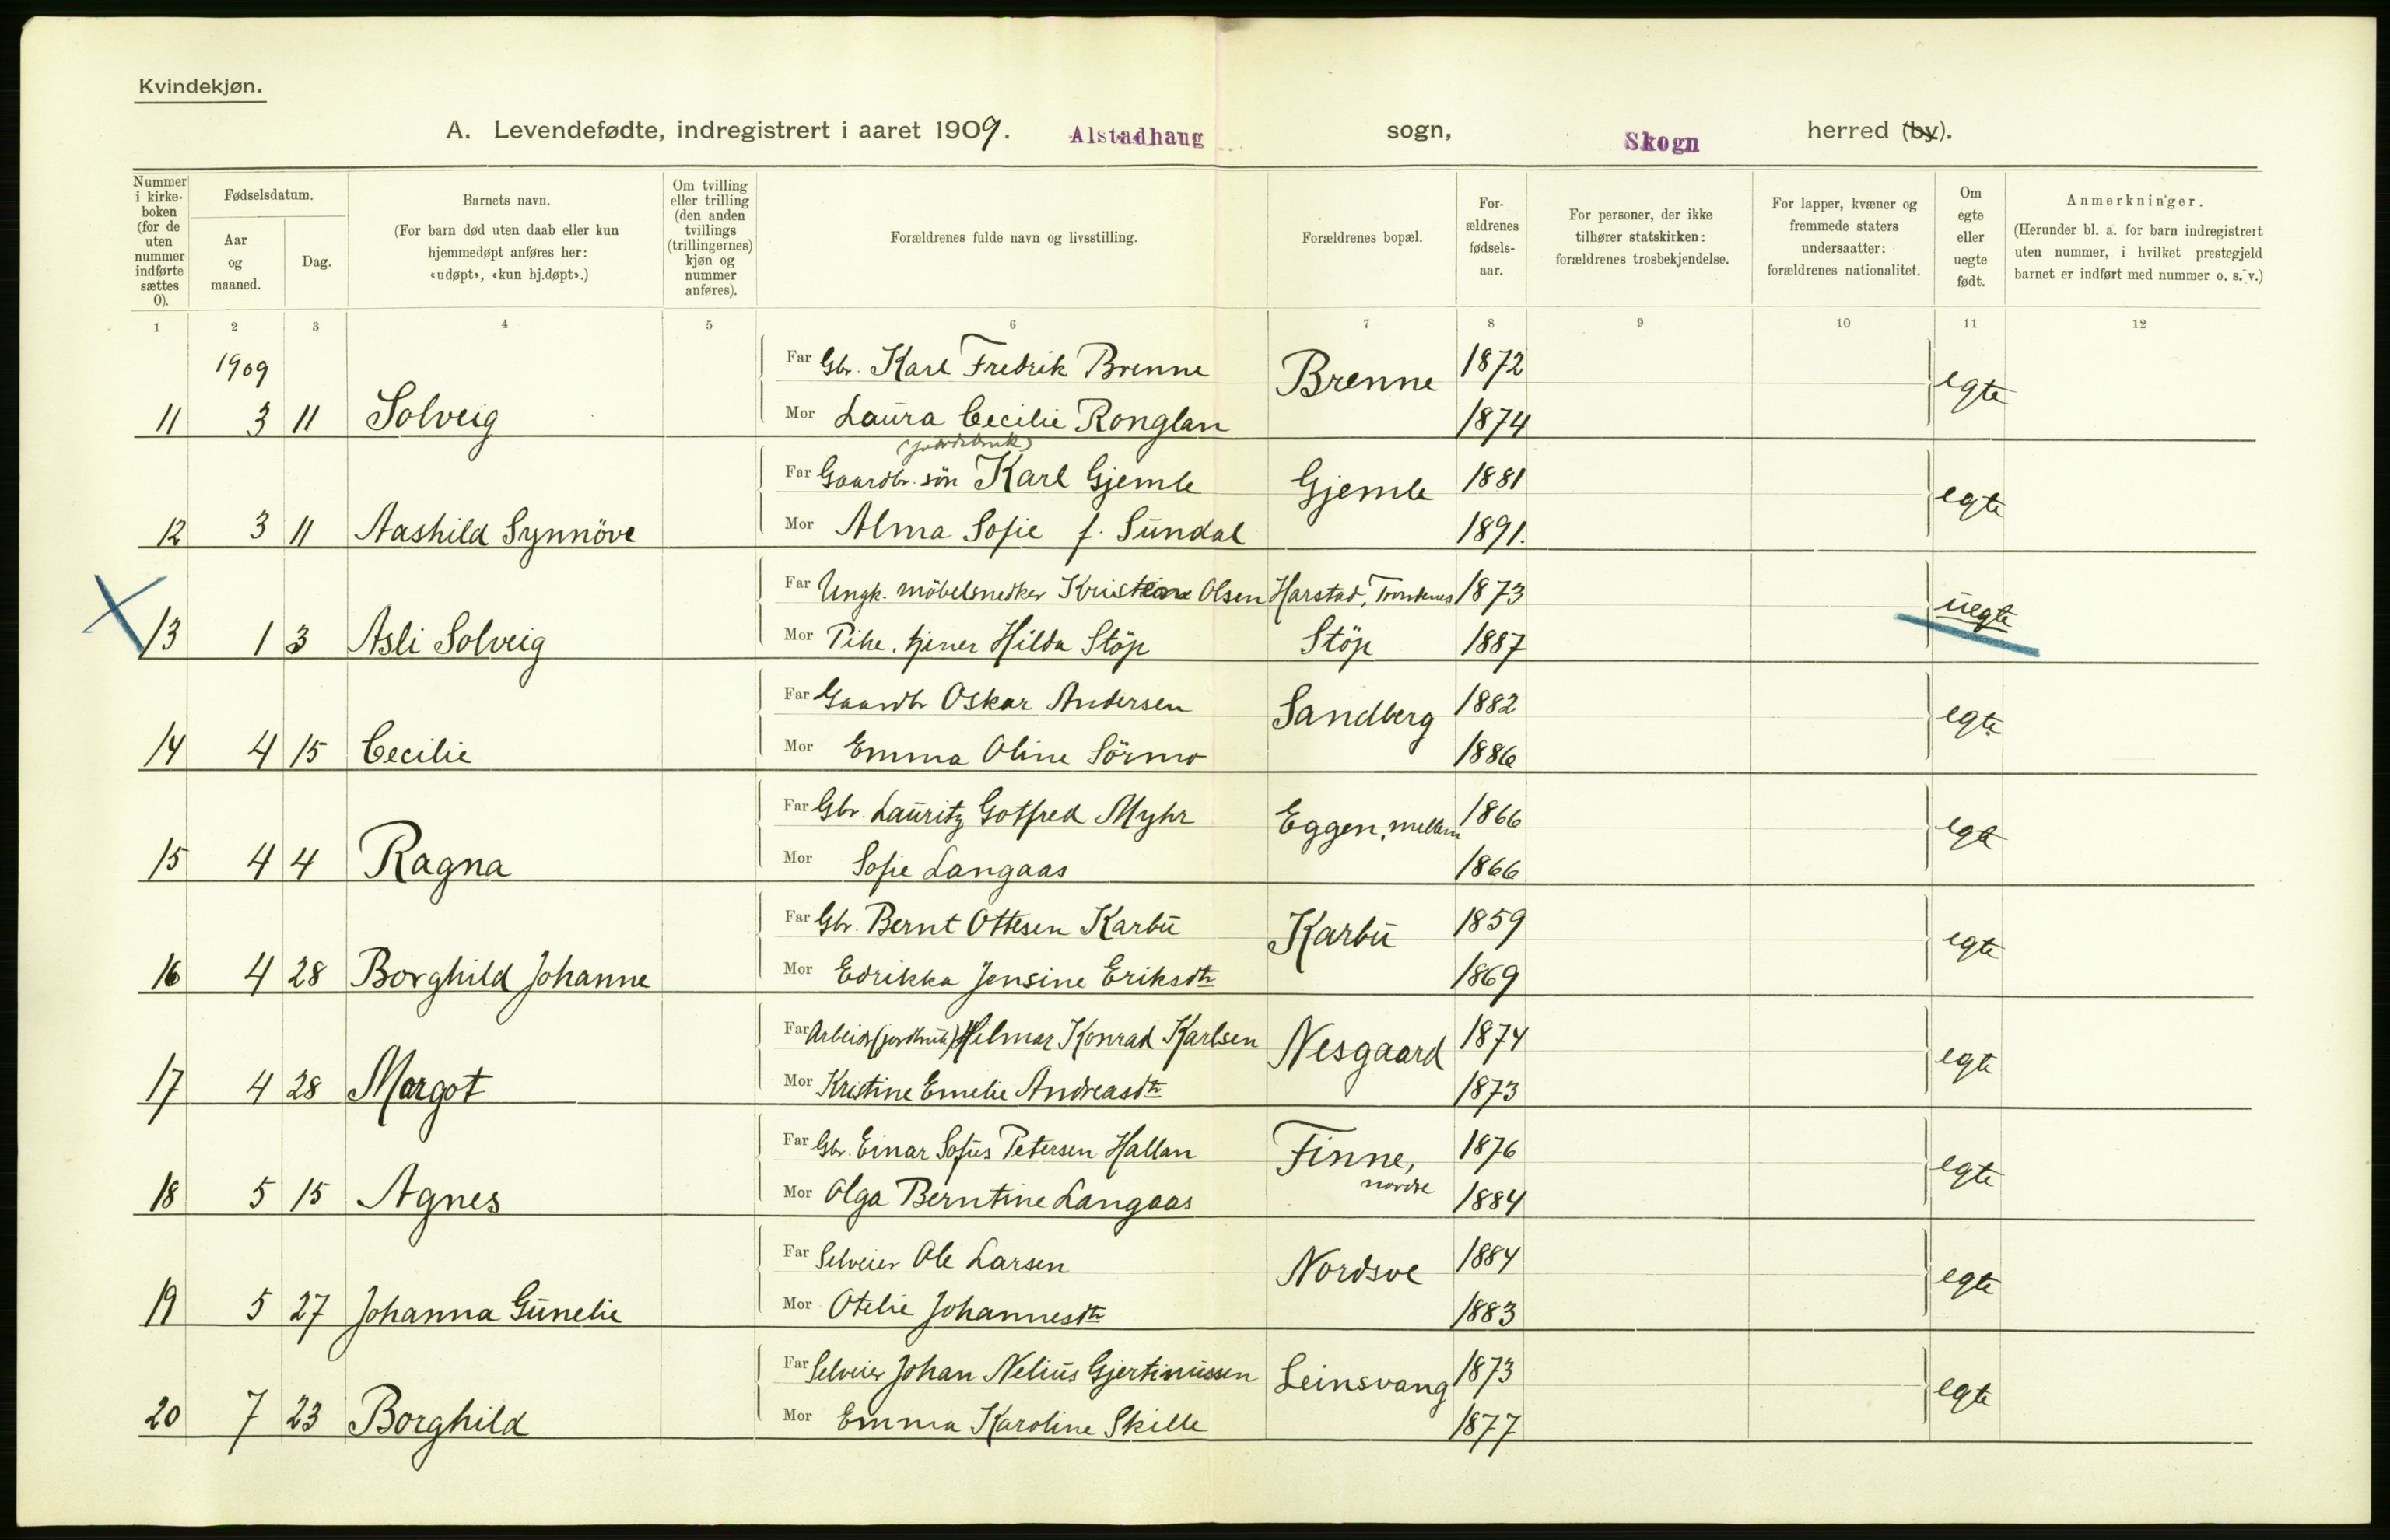 Kvindekjøn.
A. Levendefødte, indregistrert i aaret 1909. Alstadhaug sogn, Skogn herred (by).
Nummer i kirke-boken (for de uten nummer indførte sættes 0).
Fødselsdatum.
Aar og maaned.
Dag.
Barnets navn.
(For barn død uten daab eller kun hjemmedøpt anføres her: «udøpt», «kun hj.døpt».)
Om tvilling eller trilling (den anden tvillings (trillingernes) kjøn og nummer anføres).
Forældrenes fulde navn og livsstilling.
Forældrenes bopæl.
For-ældrenes fødsels-aar.
For personer, der ikke tilhører statskirken: forældrenes trosbekjendelse.
For lapper, kvæner og fremmede staters undersaatter: forældrenes nationalitet.
Om egte eller uegte født.
Anmerkninger.
(Herunder bl. a. for barn indregistrert uten nummer, i hvilket prestegjeld barnet er indført med nummer o. s. v.)
1 2 3 4 5 6 7 8 9 10 11 12
1909
Far Gbr. Karl Fredrik Brenne Brenne 1872 egte
11 3 11 Solveig Mor Laura Cecilie Ronglan 1874
(jordbruk)
Far Gaardbr. sön Karl Gjemle Gjemle 1881 egte
12 3 11 Aashild Synnöve Mor Alma Sofie f. Sundal 1891.
Far Ungk. möbelsnedker Kristian Olsen Harstad, Trondenes 1873 uegte
13 1 3 Asli Solveig Mor Pike, tjener Hilda Stöp Stöp 1887
Far Gaardbr Oskar Andersen Sandberg 1882 egte
14 4 15 Cecilie Mor Emma Oline Sörmo 1886
Far Gbr. Lauritz Gotfred Myhr Eggen, mellem 1866 egte
15 4 4 Ragna Mor Sofie Langaas 1866
Far Gbr. Bernt Ottesen Karbu Karbu 1859 egte
16 4 28 Borghild Johanne Mor Edrikka Jensine Eriksdtr 1869
Far Arbeider (jordbruk) Hilmar Konrad Karlsen Nesgaard 1874 egte
17 4 28 Margot Mor Kristine Emelie Andreasdtr 1873
Far Gbr. Einar Sofus Petersen Hallan Finne, nordre 1876 egte
18 5 15 Agnes Mor Olga Berntine Langaas 1884
Far Selveier Ole Larsen Nordsve 1884 egte
19 5 27 Johanna Gunelie Mor Otelie Johannesdtr 1883
Far Selveier Johan Nelius Gjertinussen Leinsvang 1873 egte
20 7 23 Borghild Mor Emma Karoline Skille 1877